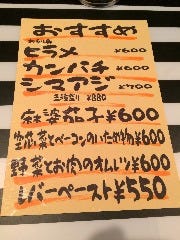 おすすめ
ヒラメ ¥600
カンパチ ¥600
シマアジ ¥700
麻婆茄子 ¥600
空芯菜とベーコンのいため物 ¥600
野菜とお肉のオムレツ ¥600
レバーペースト ¥550